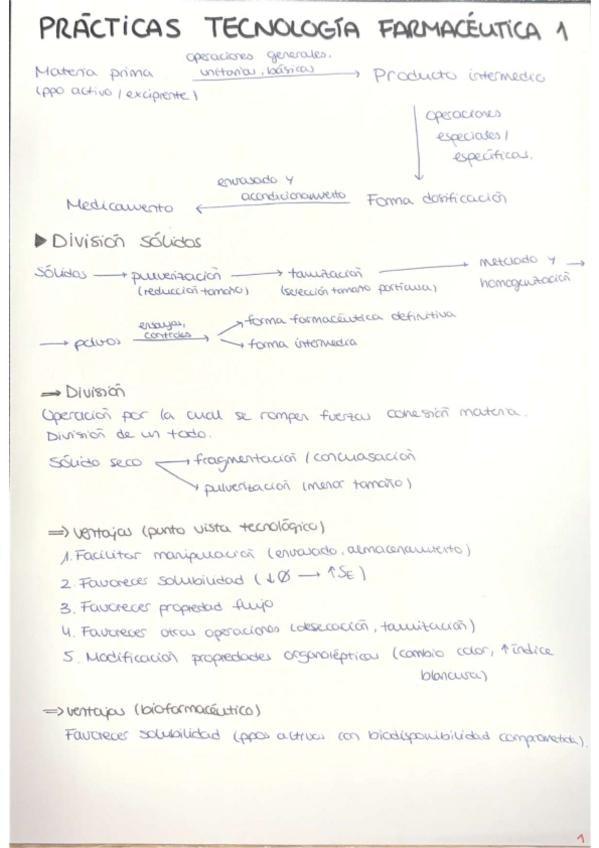 PRÁCTICAS TECNOLOGÍA FARMACÉUTICA 1
operaciones generales,
Materia prima unitarias, básicas → Producto intermedio
(ppo activo / excipiente)
operaciones
especiales /
específicas.
envasado y
Medicamento ← acondicionamiento Forma dosificación
▶ División sólidos
Sólidos → pulverización → tamización → mezclado y →
(reducción tamaño) (selección tamaño partícula) homogenización
→ polvos ensayos, controles → forma farmacéutica definitiva
→ forma intermedia
→ División
Operación por la cual se rompen fuerzas cohesión materia.
División de un todo.
Sólido seco → fragmentación / concuasación
→ pulverización (menor tamaño)
⇒ ventajas (punto vista tecnológico)
1. Facilitar manipulación (envasado, almacenamiento)
2. Favorecer solubilidad (↓Ø → ↑SE)
3. Favorecer propiedad flujo
4. Favorecer otras operaciones (desecación, tamización)
5. Modificación propiedades organolépticas (cambio color, ↑ índice
blancura)
⇒ ventajas (biofarmacéutico)
Favorecer solubilidad (ppos activos con biodisponibilidad comprometida).
1